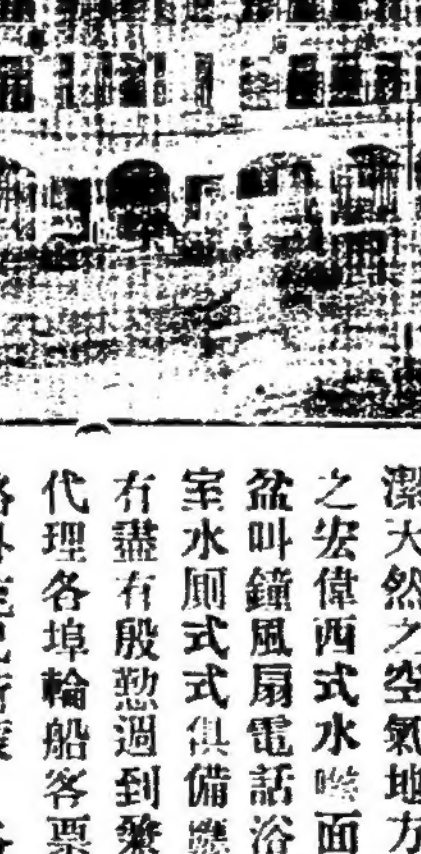 潔天然之空氣地方
之宏偉西式水喉面
盆叫鐘風扇電話浴
室水厠式式俱備應
有盡有殷懃週到兼
代理各埠輪船客票